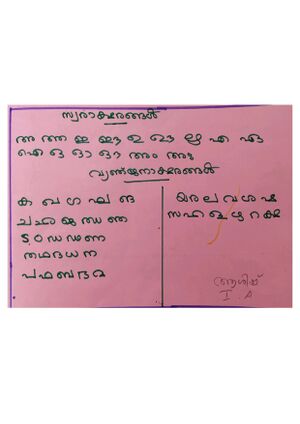 സ്വരാക്ഷരങ്ങൾ
അ ആ ഇ ഈ ഉ ഊ ഋ എ ഏ
ഐ ഒ ഓ ഔ അം അഃ
വ്യഞ്ജനാക്ഷരങ്ങൾ
ക ഖ ഗ ഘ ങ
ച ഛ ജ ഝ ഞ
ട ഠ ഡ ഢ ണ
ത ഥ ദ ധ ന
പ ഫ ബ ഭ മ
യ ര ല വ ശ ഷ
സ ഹ ള ഴ റ ക്ഷ
I A